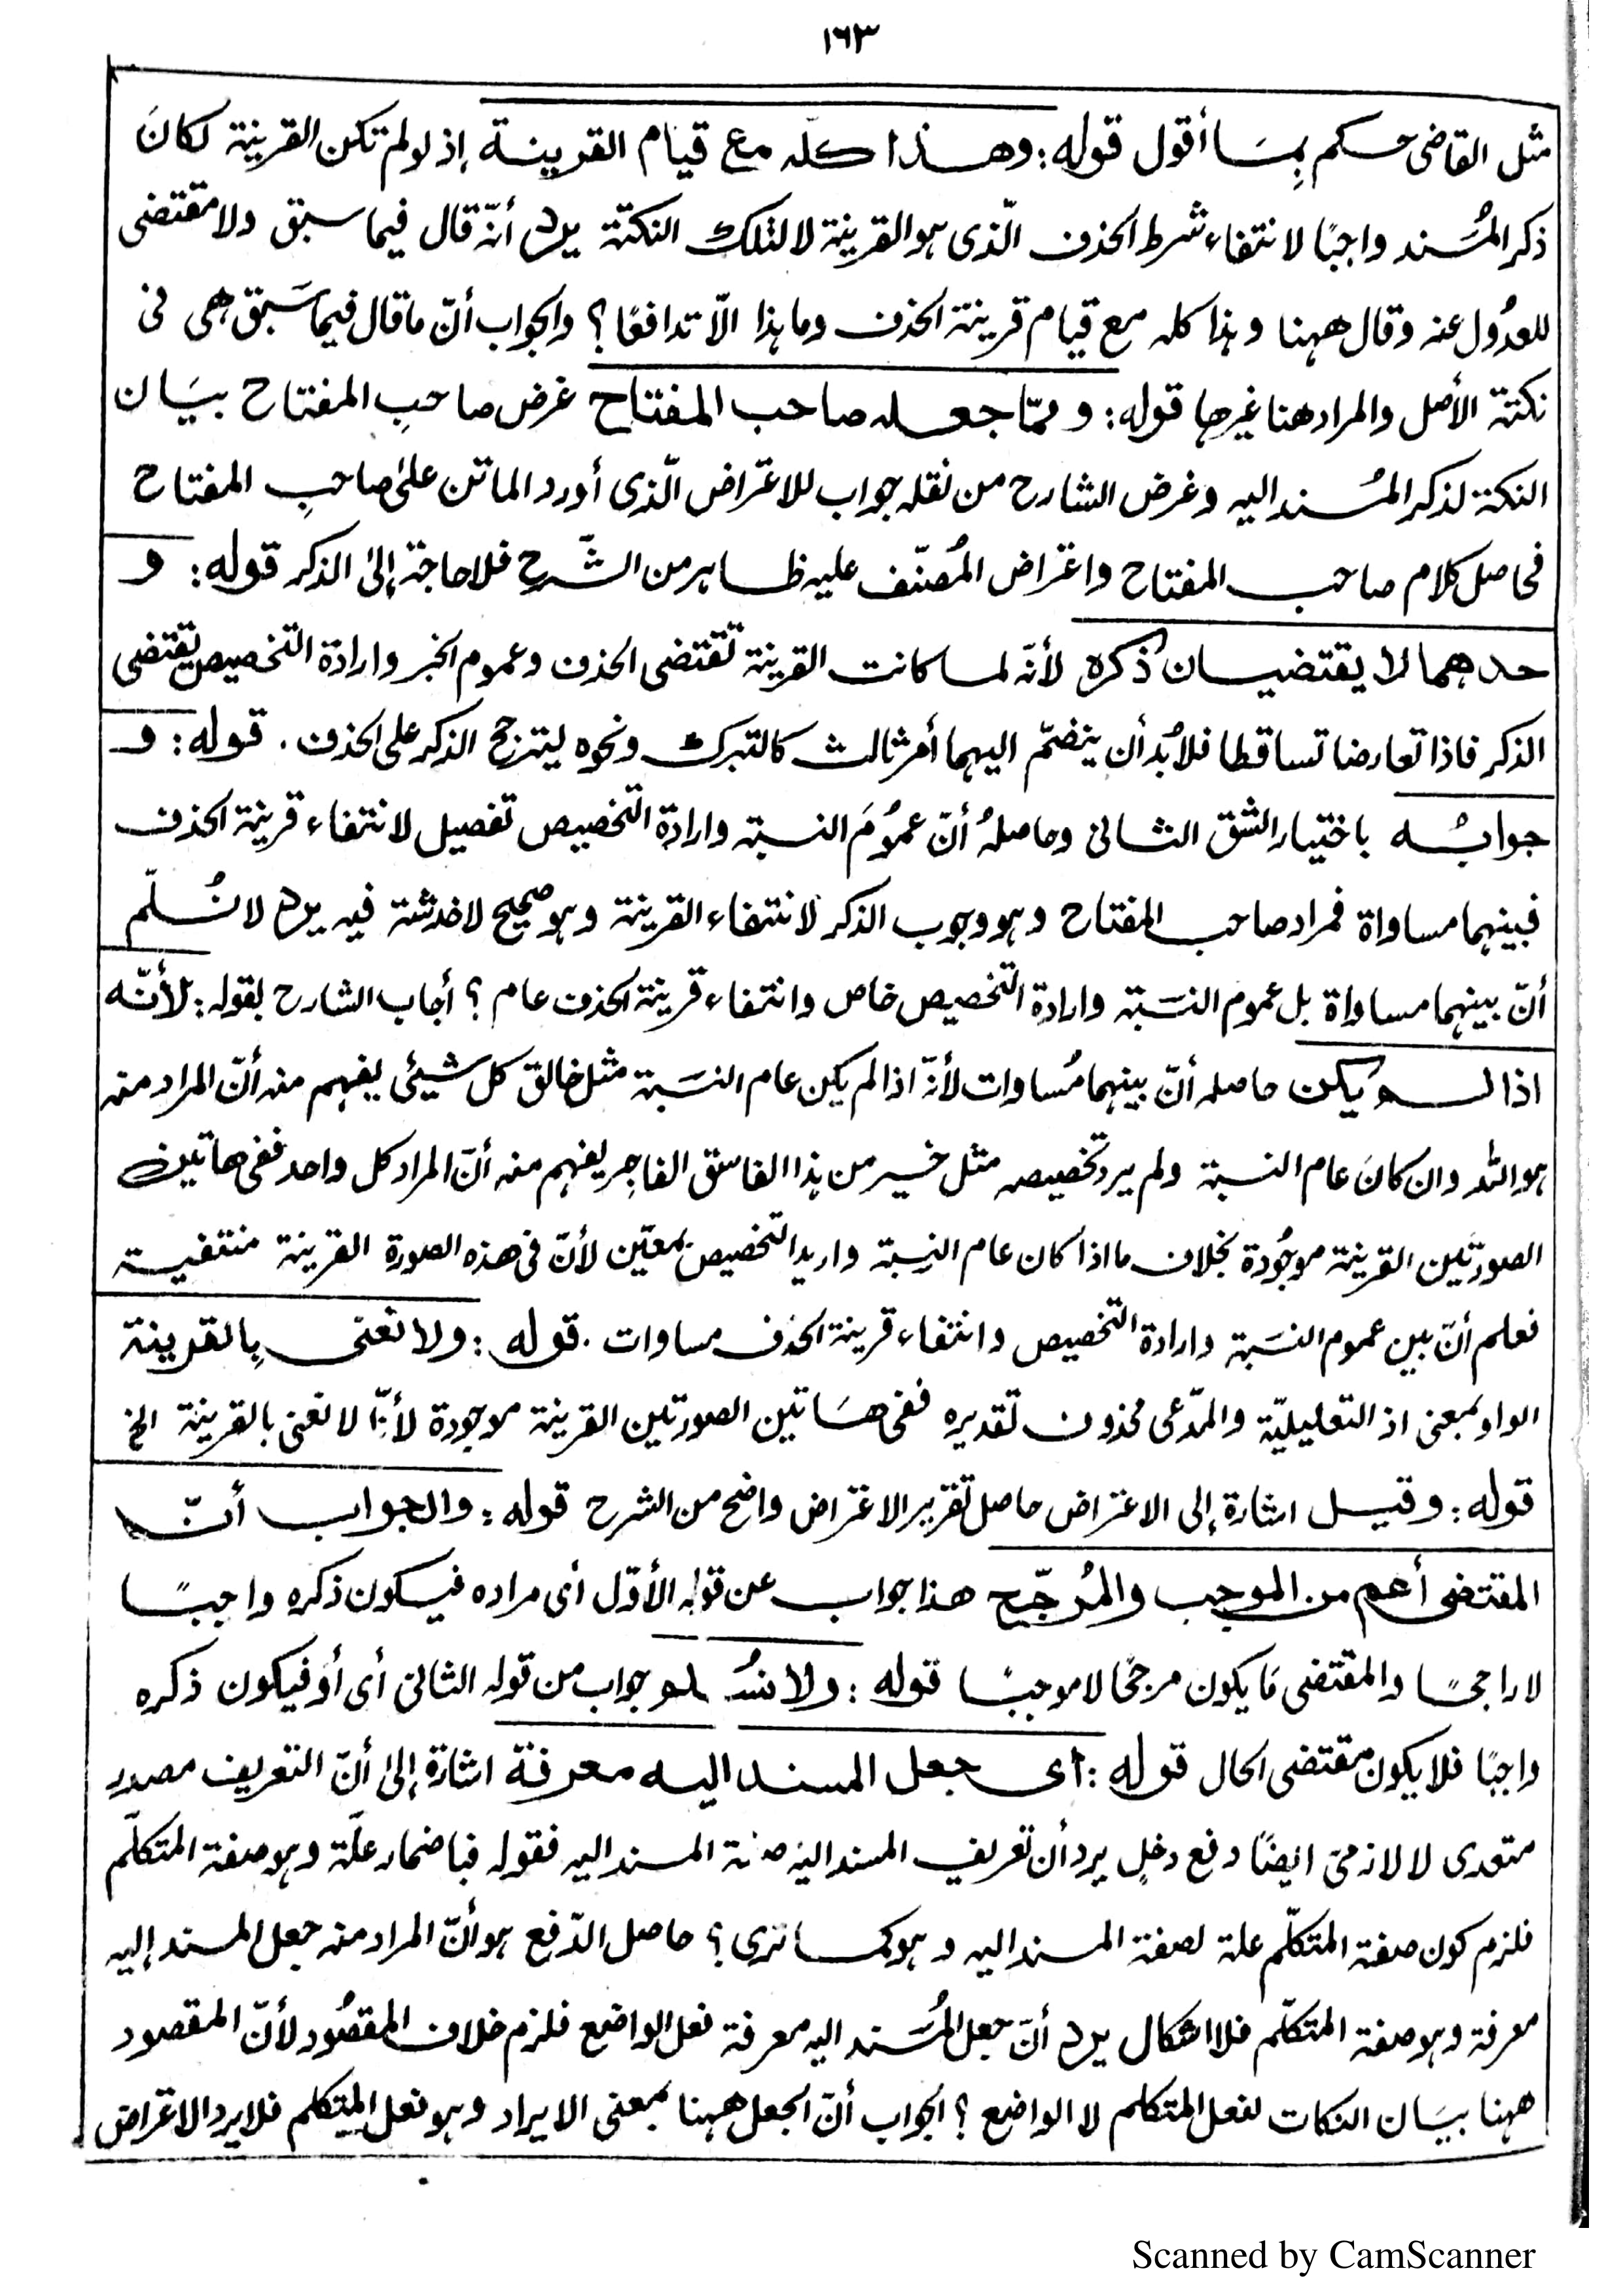 ١٦٣
مثل القاضى حكم بِمَا أقول قوله: وهذا كله مع قيام القرينة إذ لو لم تكن القرينة لكانَ
ذكر المُسند واجبًا لانتفاء شرط الحذف الّذى هو القرينة لا لتلك النكتة يرد أنّه قال فيما سبق ولا مقتضى
للعدُول عنه وقال ههنا وهذا كله مع قيام قرينة الحذف وما هذا الّا تدافعًا؟ والجواب أنّ ما قال فيما سَبق هى فى
نكتة الأصل والمراد هنا غيرها قوله: وممّا جعله صاحب المفتاح غرض صاحبِ المفتاح بيَان
النكتة لذكر المُسند اليه وغرض الشارح من نقله جواب للاعتراض الّذى أورد الماتن علىٰ صاحبِ المفتاح
فحاصل كلام صاحب المفتاح واعتراض المُصنّف عليه ظاهر من الشَّرح فلا حاجة إلىٰ الذكر قوله: و
حدهما لا يقتضيان ذكره لأنّه لما كانت القرينة تقتضى الحذف وعموم الخبر وارادة التخصيص يقتضى
الذكر فاذا تعارضا تساقطا فلا بُد أن ينضمّ اليهما أمر ثالث كالتبرك ونحوه ليترجح الذكر على الحذف. قوله: و
جوابُه باختيار الشق الثانى وحاصلهُ أنّ عمُومَ النسبة وارادة التخصيص تفصيل لانتفاء قرينة الحذف
فبينهما مساواة فمراد صاحب المفتاح وهو وجوب الذكر لانتفاء القرينة وهو صحيح لا خدشة فيه يرد لا نُسلّم
أنّ بينهما مساواة بل عموم النسَبة وارادة التخصيص خاص وانتفاء قرينة الحذف عام؟ أجاب الشارح بقوله: لأنّه
اذا لم يكن حاصله أنّ بينهما مُساوات لأنّه اذا لم يكن عام النسَبة مثل خالق كل شيئى يفهم منه أنّ المراد منه
هو الله وان كانَ عام النسبة ولم يرد تخصيصه مثل خير من هذا الفاسق الفاجِر يفهم منه أنّ المراد كل واحد ففى هاتين
الصورتَين القرينة موجُودة بخلاف ما اذا كان عام النسِبة واريد التخصيص بمعيّن لأنّ فى هذه الصورة القرينة منتفية
فعلم أنّ بين عموم النسَبة وارادة التخصيص وانتفاء قرينة الحذف مساوات. قوله: ولا نعنى بِالقرينة
الواو بمعنى اذ التعليليّة والمدّعى محذوف تقديره ففى هَاتين الصورتين القرينة موجودة لأنّا لا نعنى بالقرينة الخ
قوله: وقيل اشارة إلى الاعتراض حاصل تقرير الاعتراض واضح من الشرح قوله: والجواب أنّ
المقتضى أعم من الموجب والمُرجّح هذا جواب عن قوله الأوّل أى مراده فيكون ذكره واجبًا
لا راجحًا والمقتضى مَا يكون مرجحًا لا موجبًا قوله: ولا نُسلم جواب من قوله الثانى أى أو فيكون ذكره
واجبًا فلا يكون مقتضى الحال قوله: أى جعل المسند اليه معرفة اشارة إلىٰ أنّ التعريف مصدر
متعدى لا لازمىّ ايضًا دفع دخلٍ يرد أن تعريف المسند اليه صفة المسند اليه فقوله فباضمار علّة وهو صفة المتكلّم
فلزم كون صفة المتكلّم علة لصفة المسند اليه وهو كما ترى؟ حاصل الدّفع هو أنّ المراد منه جعل المسند إليه
معرفة وهو صفة المتكلّم فلا اشكال يرد أنّ جعل المُسَند اليه معرفة فعل الواضع فلزم خلاف المقصُود لأنّ المقصود
ههنا بيَان النكات لفعل المتكلم لا الواضع؟ الجواب أنّ الجعل ههنا بمعنى الايراد وهو فعل المتكلم فلا يرد الاعتراض
Scanned by CamScanner